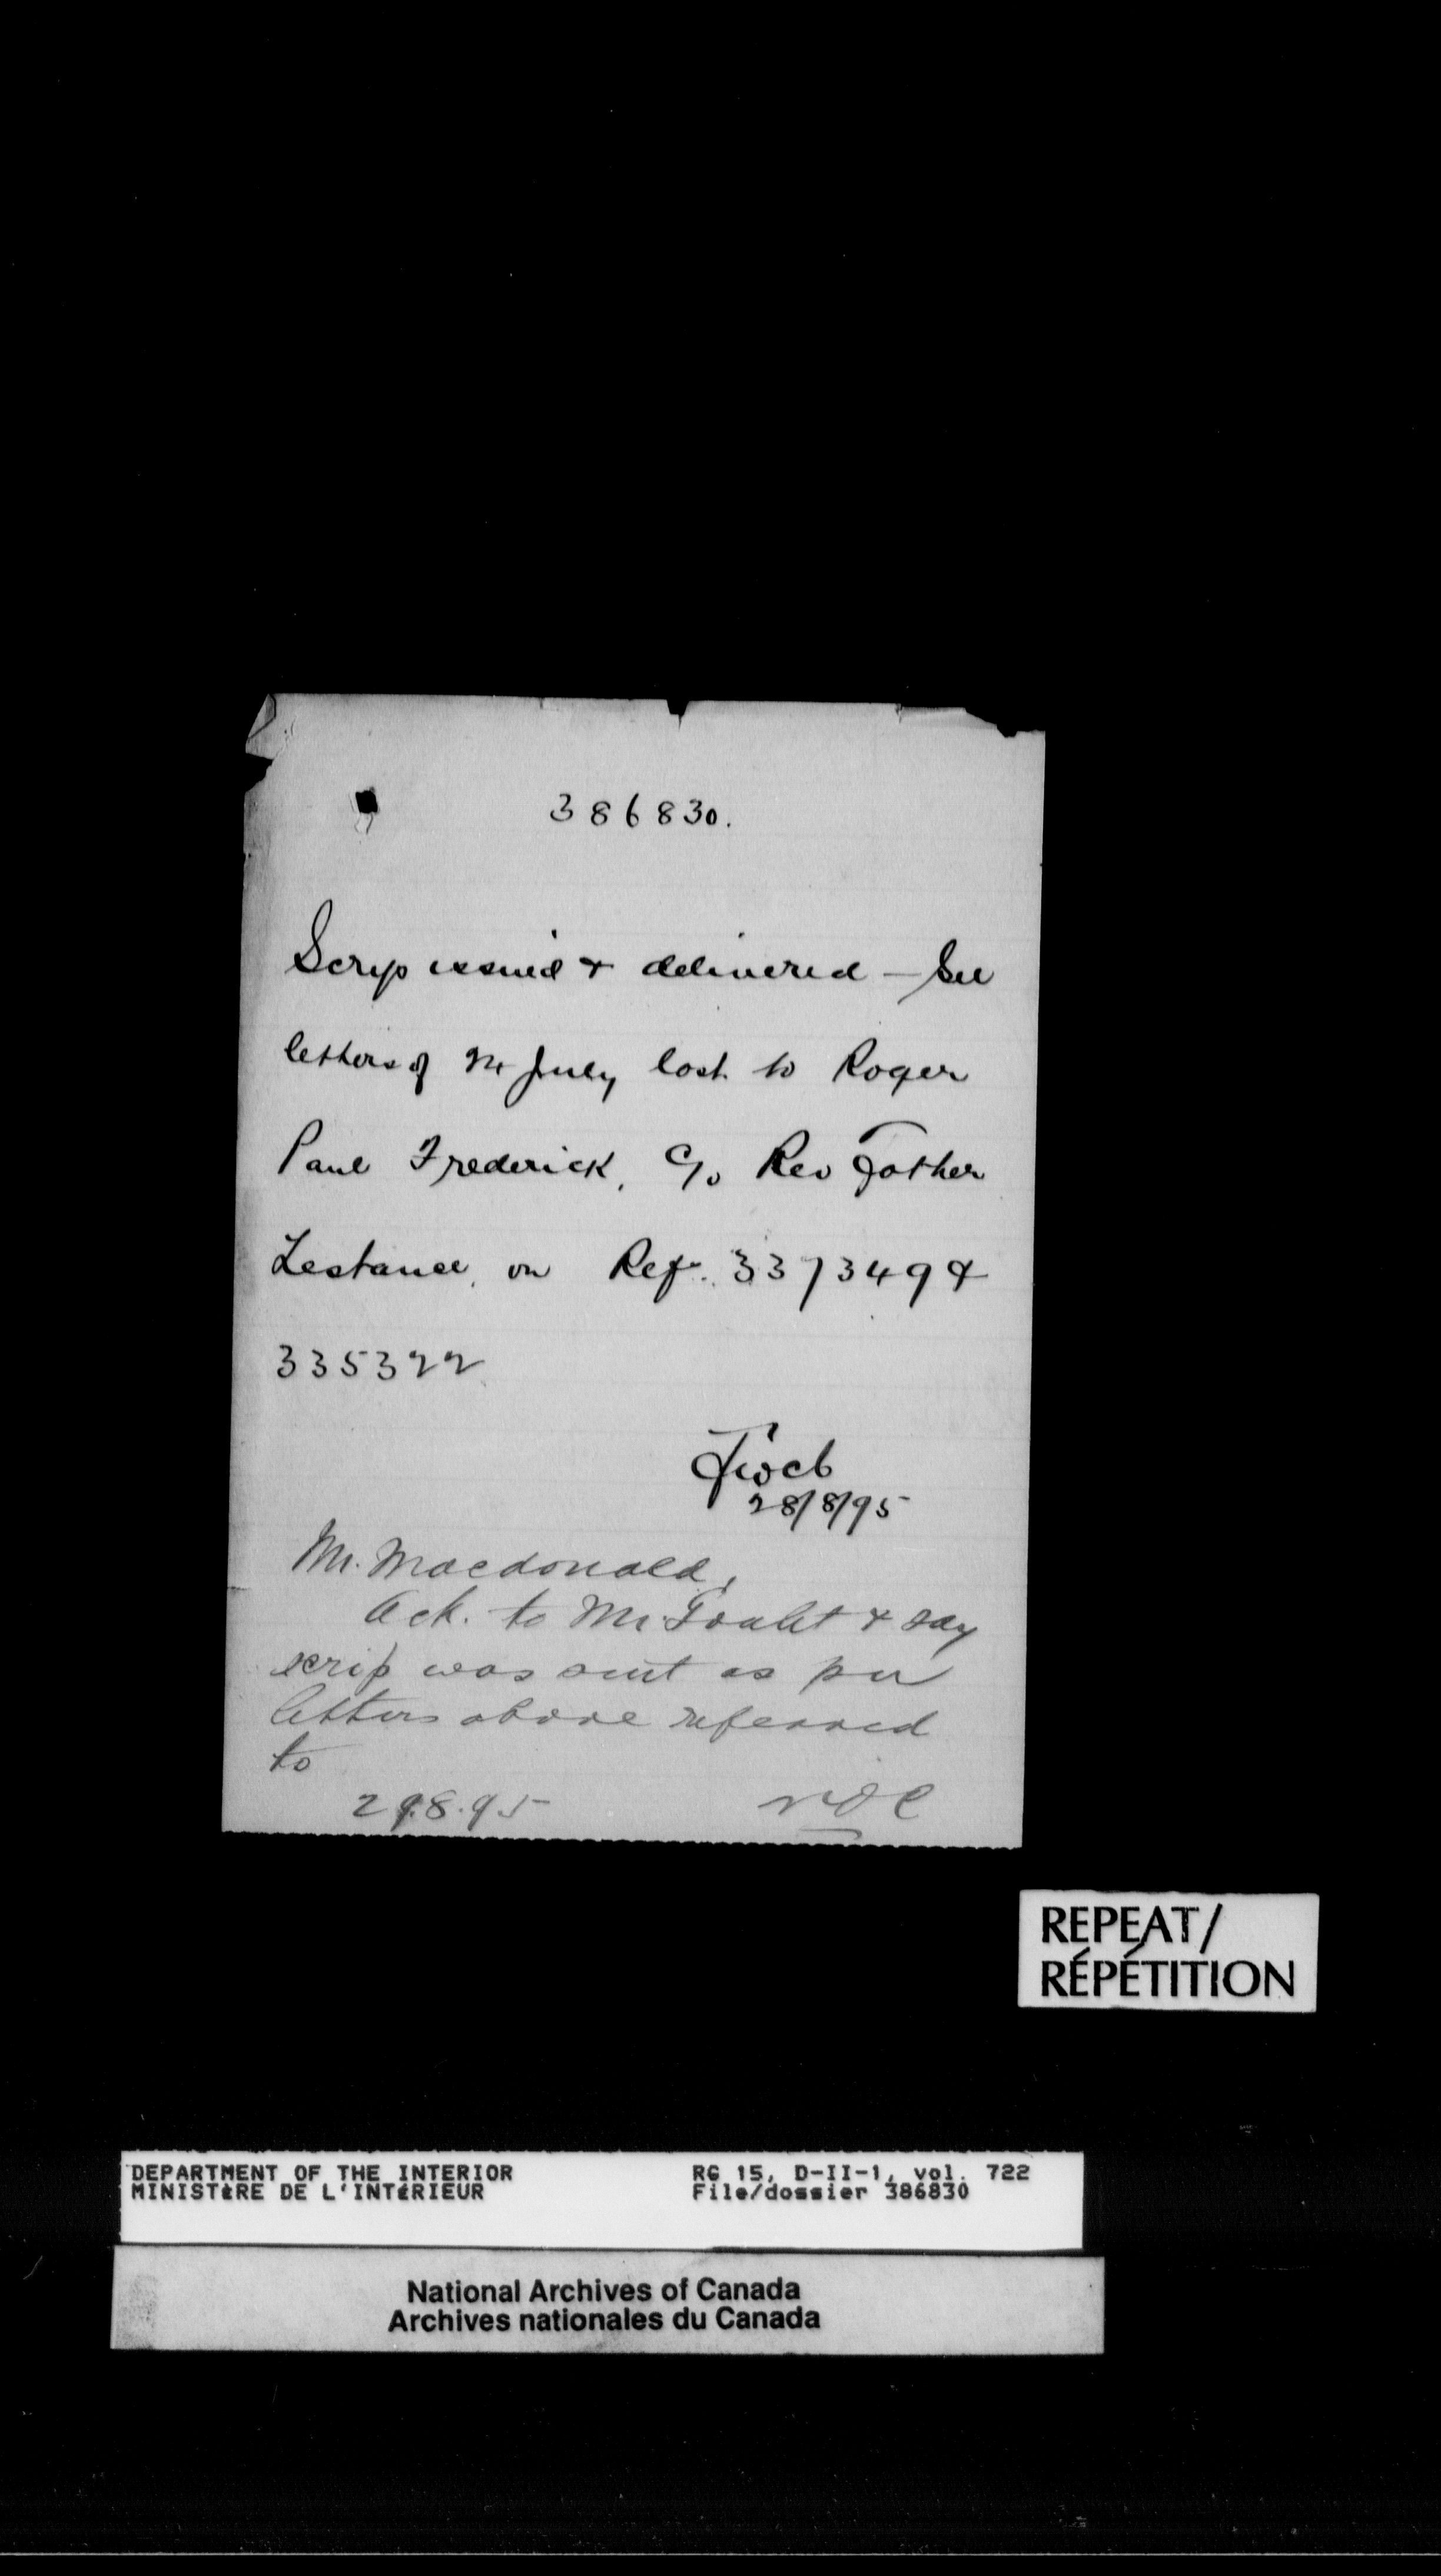 386830.
Scrip issued & delivered — See
letters of 24 July last to Roger
Paul Frederick, c/o Rev Father
Lestance, on Ref. 337349 &
335322
28/8/95
Mr. Macdonald,
Ack. to Mr. Goulet & say
scrip was sent as per
letters above referred
to
29.8.95
REPEAT/
RÉPÉTITION
DEPARTMENT OF THE INTERIOR RG 15, D-II-1, vol. 722
MINISTÈRE DE L'INTÉRIEUR File/dossier 386830
National Archives of Canada
Archives nationales du Canada